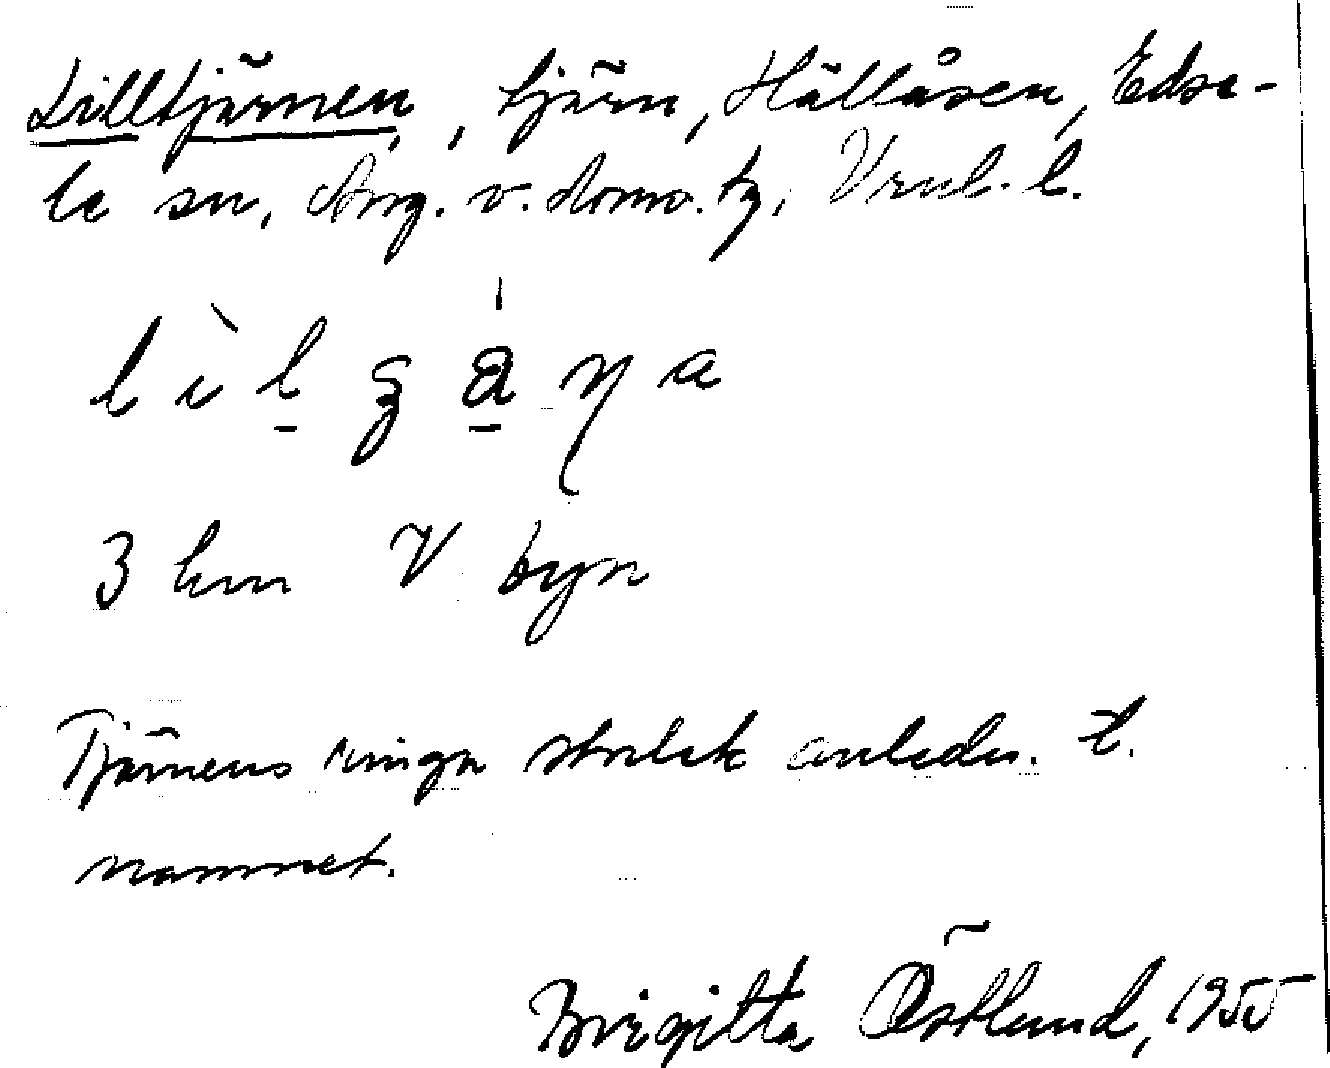 Lilltjärnen, tjärn, Hållåsen, Edse-
le sn, Ång. v. doms. tg, Vrnl. l.
3 km V byn
Tjärnens ringa storlek anledn. t.
namnet.
Birgitta Östlund, 1955